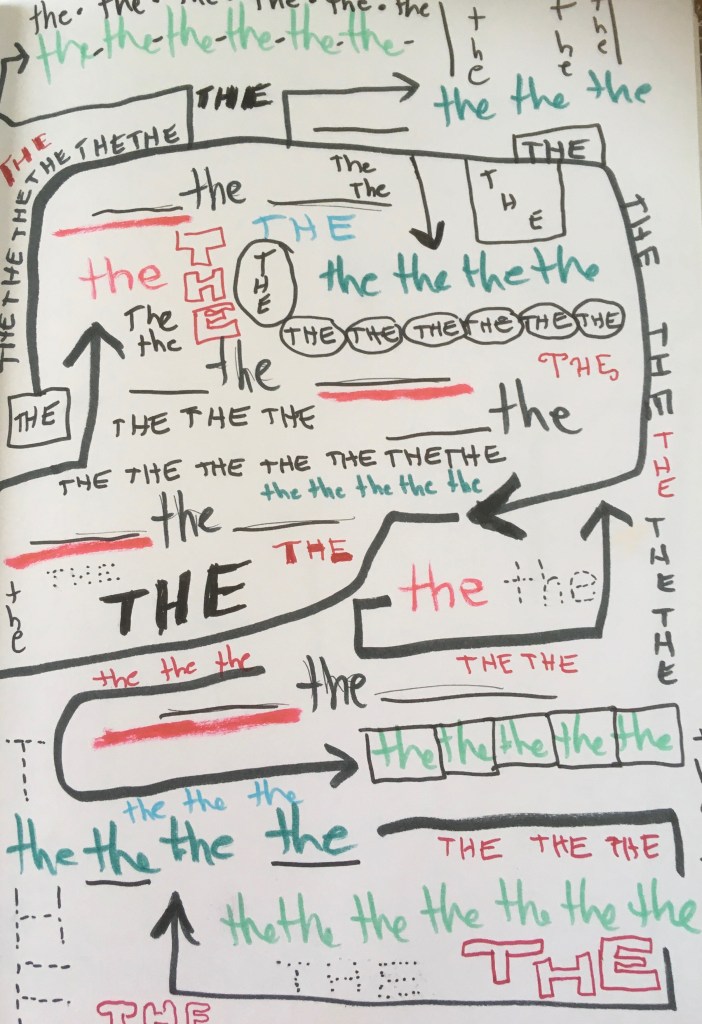 the. the. the. the. the. the
the-the-the-the-the-the-
the
the
the
THE
the the the
THE
THE THE THE THE THE THE
THE
THE
The
The
the
THE
THE
the
THE
THE
the the the the
THE
The
the
THE THE THE THE THE THE
the
THE
THE
THE
THE THE THE
the
THE
THE THE THE THE THE THE THE
the the the the the
the
THE
THE
THE
THE THE
the
THE
the the
the the the
THE THE
the
the the the the the
the the the
the the the the
THE THE THE
the the the the the the the
THE
THE
THE
THE